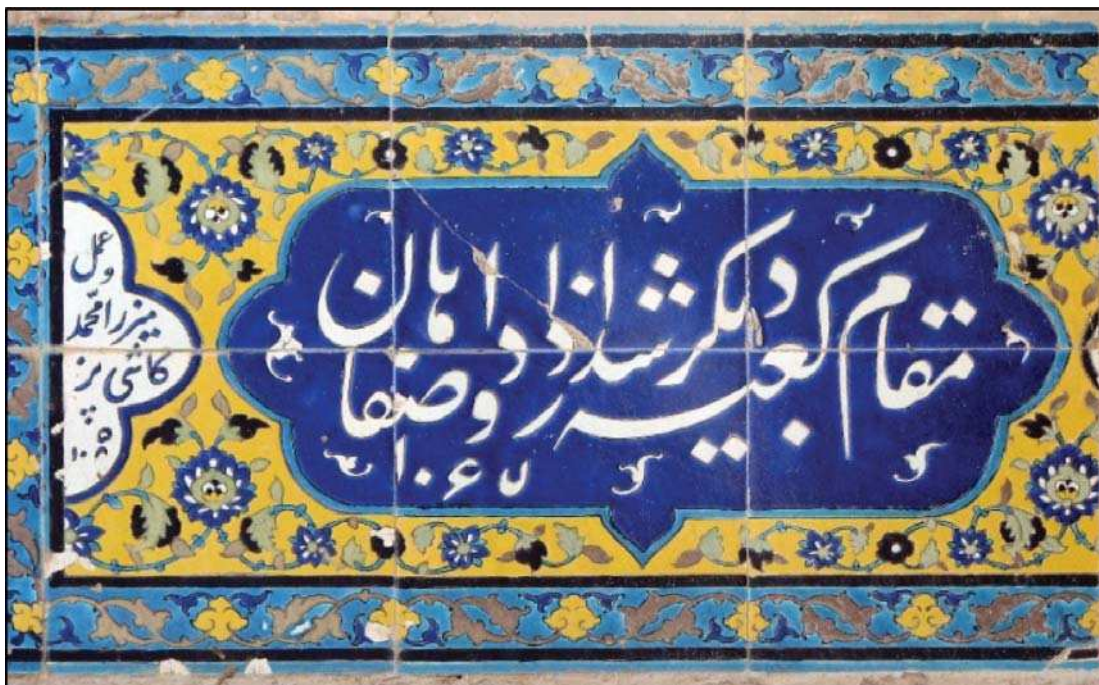 مقام کعبه دیگر شد از داود اصفاهان
۱۰۶۷
و عمل
میرزا محمد
کاشی پز